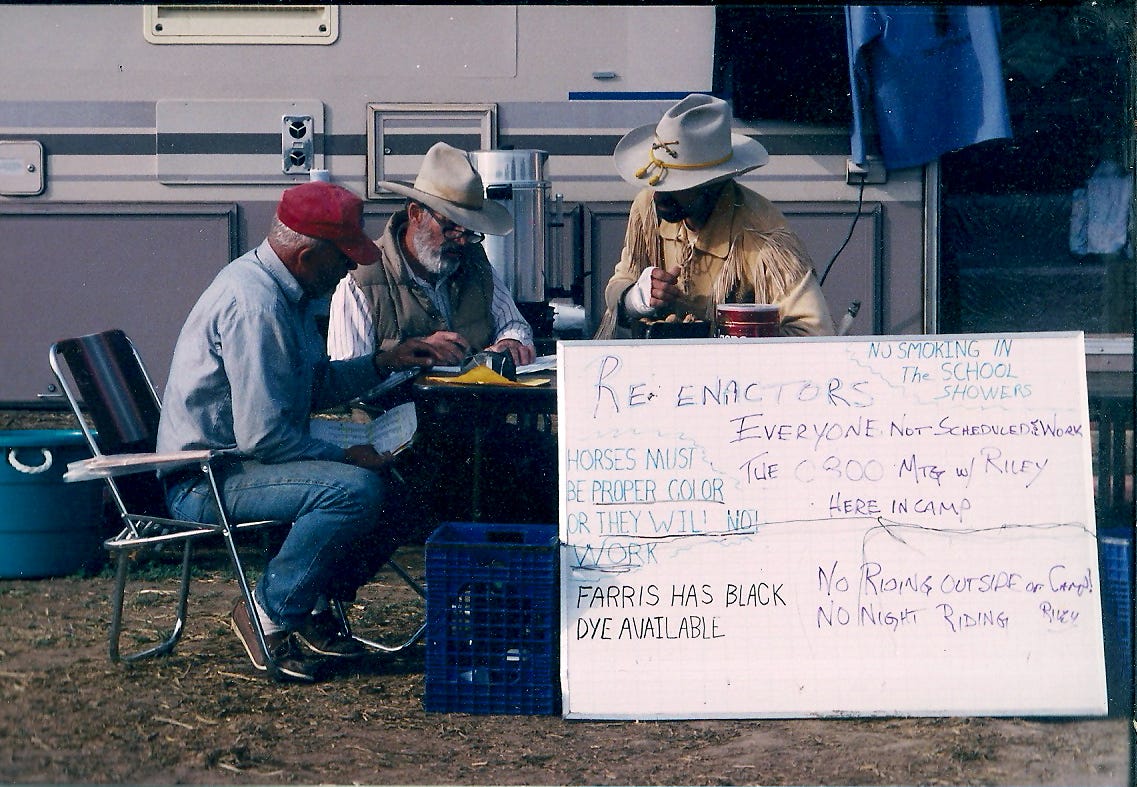 NO SMOKING IN
The SCHOOL
SHOWERS
RE-ENACTORS
EVERYONE NOT SCHEDULED WORK
TUE 0800 MTG w/ RILEY
HERE IN CAMP
HORSES MUST
BE PROPER COLOR
OR THEY WILL NOT
WORK
FARRIS HAS BLACK
DYE AVAILABLE
NO RIDING OUTSIDE OF CAMP!
NO NIGHT RIDING RILEY